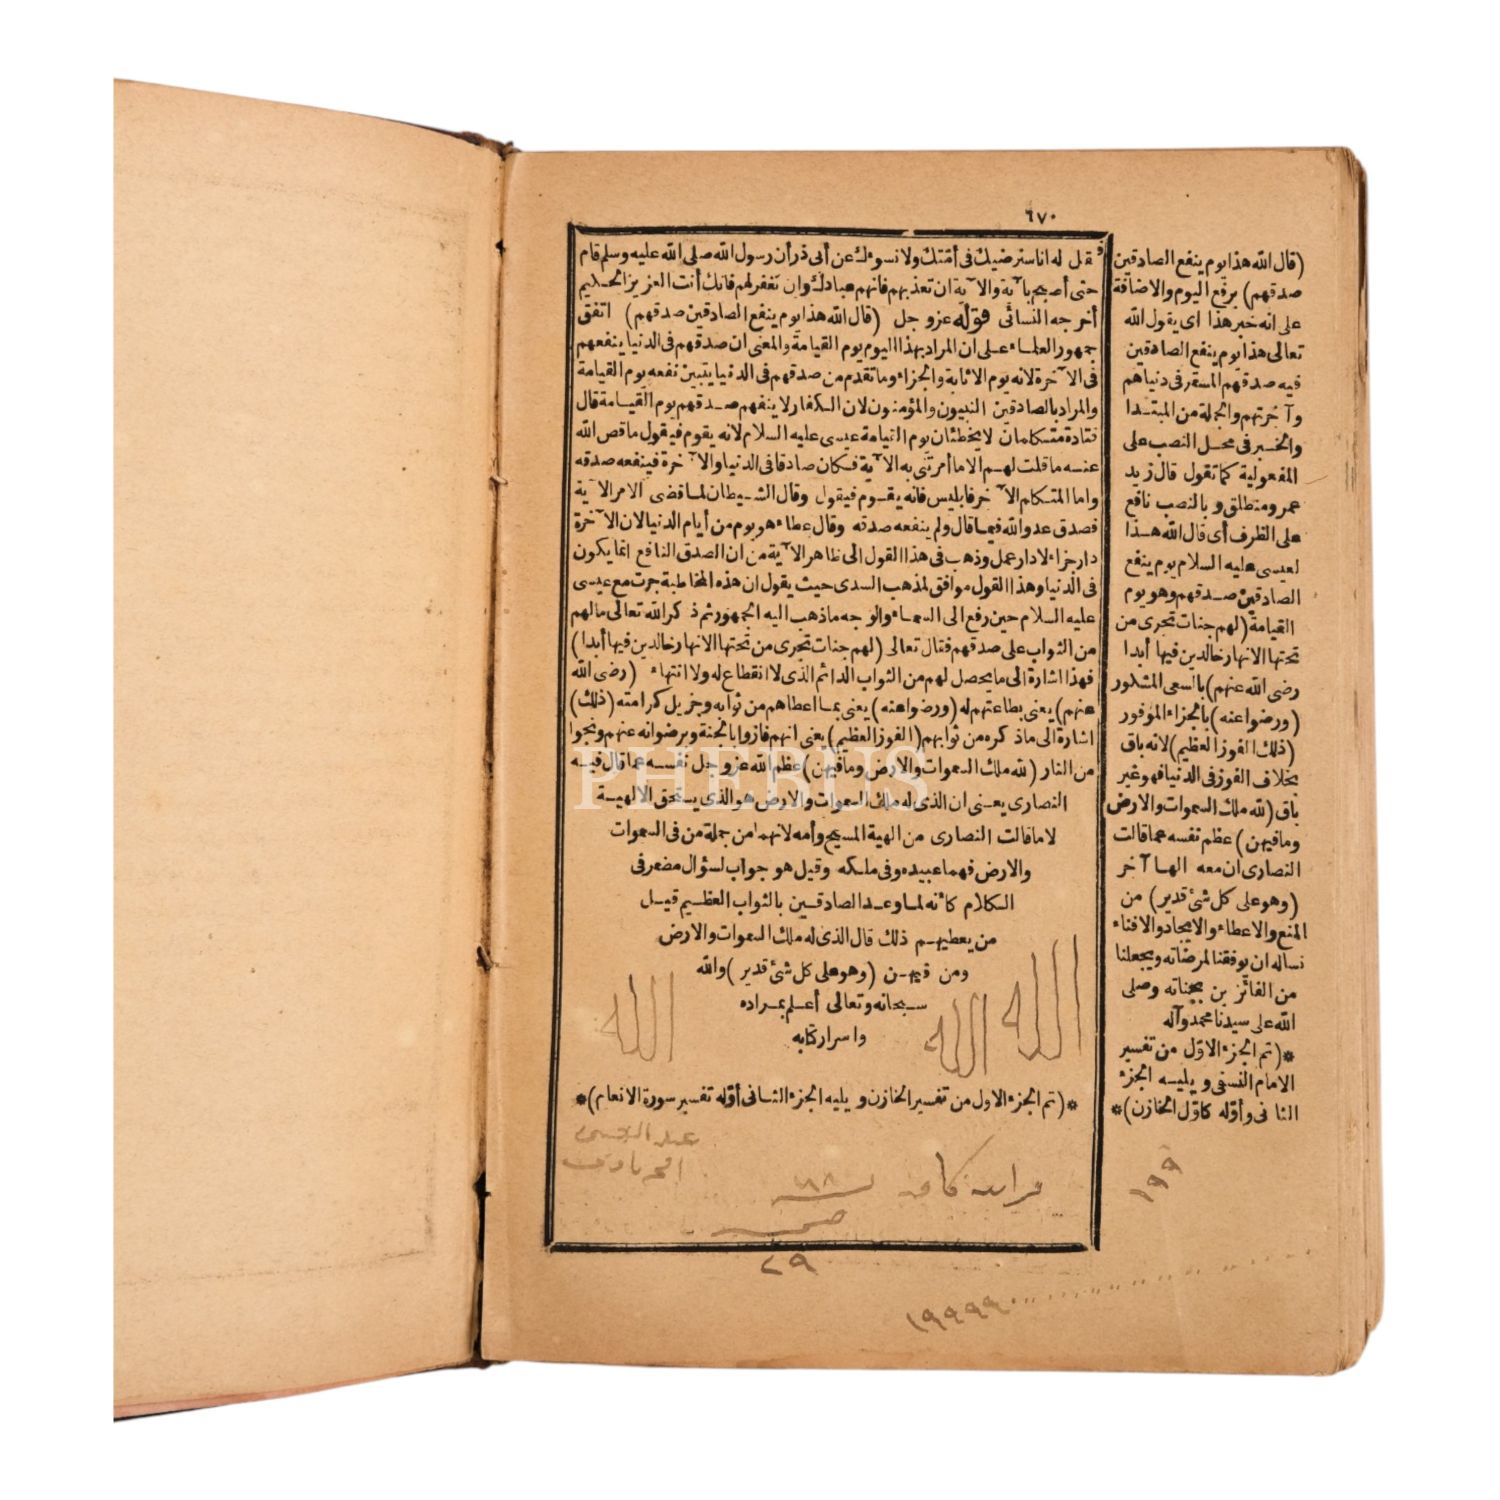 ٦٧٠
فقل له اناسنرضيك فى أمتك ولا نسوءك عن أبى ذر أن رسول الله صلى الله عليه وسلم قام
حتى أصبح بآية والآية ان تعذبهم فانهم عبادك وان تغفر لهم فانك أنت العزيز الحكيم
أخرجه النسائى قوله عز وجل (قال الله هذا يوم ينفع الصادقين صدقهم) اتفق
جمهور العلماء على ان المراد بهذا اليوم يوم القيامة والمعنى ان صدقهم فى الدنيا ينفعهم
فى الآخرة لانه يوم الاثابة والجزاء وما تقدم من صدقهم فى الدنيا يتبين نفعه يوم القيامة
والمراد بالصادقين النبيون والمؤمنون لان الكفار لا ينفعهم صدقهم يوم القيامة قال
قتادة متكلمان لا يخطئان يوم القيامة عيسى عليه السلام لانه يقوم فيقول ما قص الله
عنه ما قلت لهم الا ما أمرتنى به الآية فكان صادقا فى الدنيا والآخرة فينفعه صدقه
واما المتكلم الآخر فابليس فانه يقوم فيقول وقال الشيطان لما قضى الامر الآية
فصدق عدو الله فيما قال ولم ينفعه صدقه وقال عطاء هو يوم من أيام الدنيا لان الآخرة
دار جزاء لا دار عمل وذهب فى هذا القول الى ظاهر الآية من ان الصدق النافع انما يكون
فى الدنيا وهذا القول موافق لمذهب السدى حيث يقول ان هذه المخاطبة جرت مع عيسى
عليه السلام حين رفع الى السماء والوجه ما ذهب اليه الجمهور ثم ذكر الله تعالى ما لهم
من الثواب على صدقهم فقال تعالى (لهم جنات تجرى من تحتها الانهار خالدين فيها أبدا)
فهذا اشارة الى ما يحصل لهم من الثواب الدائم الذى لا انقطاع له ولا انتهاء (رضى الله
عنهم) يعنى بطاعتهم له (ورضوا عنه) يعنى بما اعطاهم من ثوابه وجزيل كرامته (ذلك)
اشارة الى ما ذكره من ثوابهم (الفوز العظيم) يعنى انهم فازوا بالجنة وبرضوانه عنهم ونجوا
من النار (لله ملك السموات والارض وما فيهن) عظم الله عز وجل نفسه عما قال فيه
النصارى يعنى ان الذى له ملك السموات والارض هو الذى يستحق الالهية
لا ما قالت النصارى من الهية المسيح وأمه لانهما من جملة من فى السموات
والارض فهما عبيده وفى ملكه وقيل هو جواب لسؤال مضمر فى
الكلام كأنه لما وعد الصادقين بالثواب العظيم قيل
من يعطيهم ذلك قال الذى له ملك السموات والارض
ومن فيهن (وهو على كل شئ قدير) والله
سبحانه وتعالى أعلم بمراده
واسرار كتابه
الله الله الله
*(تم الجزء الاول من تفسير الخازن ويليه الجزء الثانى أوله تفسير سورة الانعام)*
(قال الله هذا يوم ينفع الصادقين
صدقهم) برفع اليوم والاضافة
على انه خبر هذا اى يقول الله
تعالى هذا يوم ينفع الصادقين
فيه صدقهم المستقر فى دنياهم
وآخرتهم والجملة من المبتدا
والخبر فى محل النصب على
المفعولية كما تقول قال زيد
عمرو منطلق وبالنصب نافع
على الظرف أى قال الله هذا
لعيسى عليه السلام يوم ينفع
الصادقين صدقهم وهو يوم
القيامة (لهم جنات تجرى من
تحتها الانهار خالدين فيها أبدا
رضى الله عنهم) بالسعى المشكور
(ورضوا عنه) بالجزاء الموفور
(ذلك الفوز العظيم) لانه باق
بخلاف الفوز فى الدنيا فهو غير
باق (لله ملك السموات والارض
وما فيهن) عظم نفسه عما قالت
النصارى ان معه الها آخر
(وهو على كل شئ قدير) من
المنع والاعطاء والايجاد والافناء
نساله ان يوفقنا لمرضاته ويجعلنا
من الفائزين بجناته وصلى
الله على سيدنا محمد وآله
*(تم الجزء الاول من تفسير
الامام النسفى ويليه الجزء
الثانى وأوله كاول الخازن)*
١٩٩
٢٩
١٩٩٩٩
PHEBUS